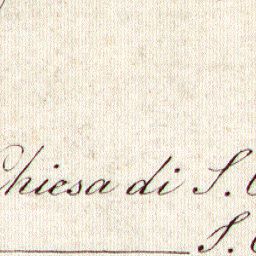 Chiesa di S.
S.